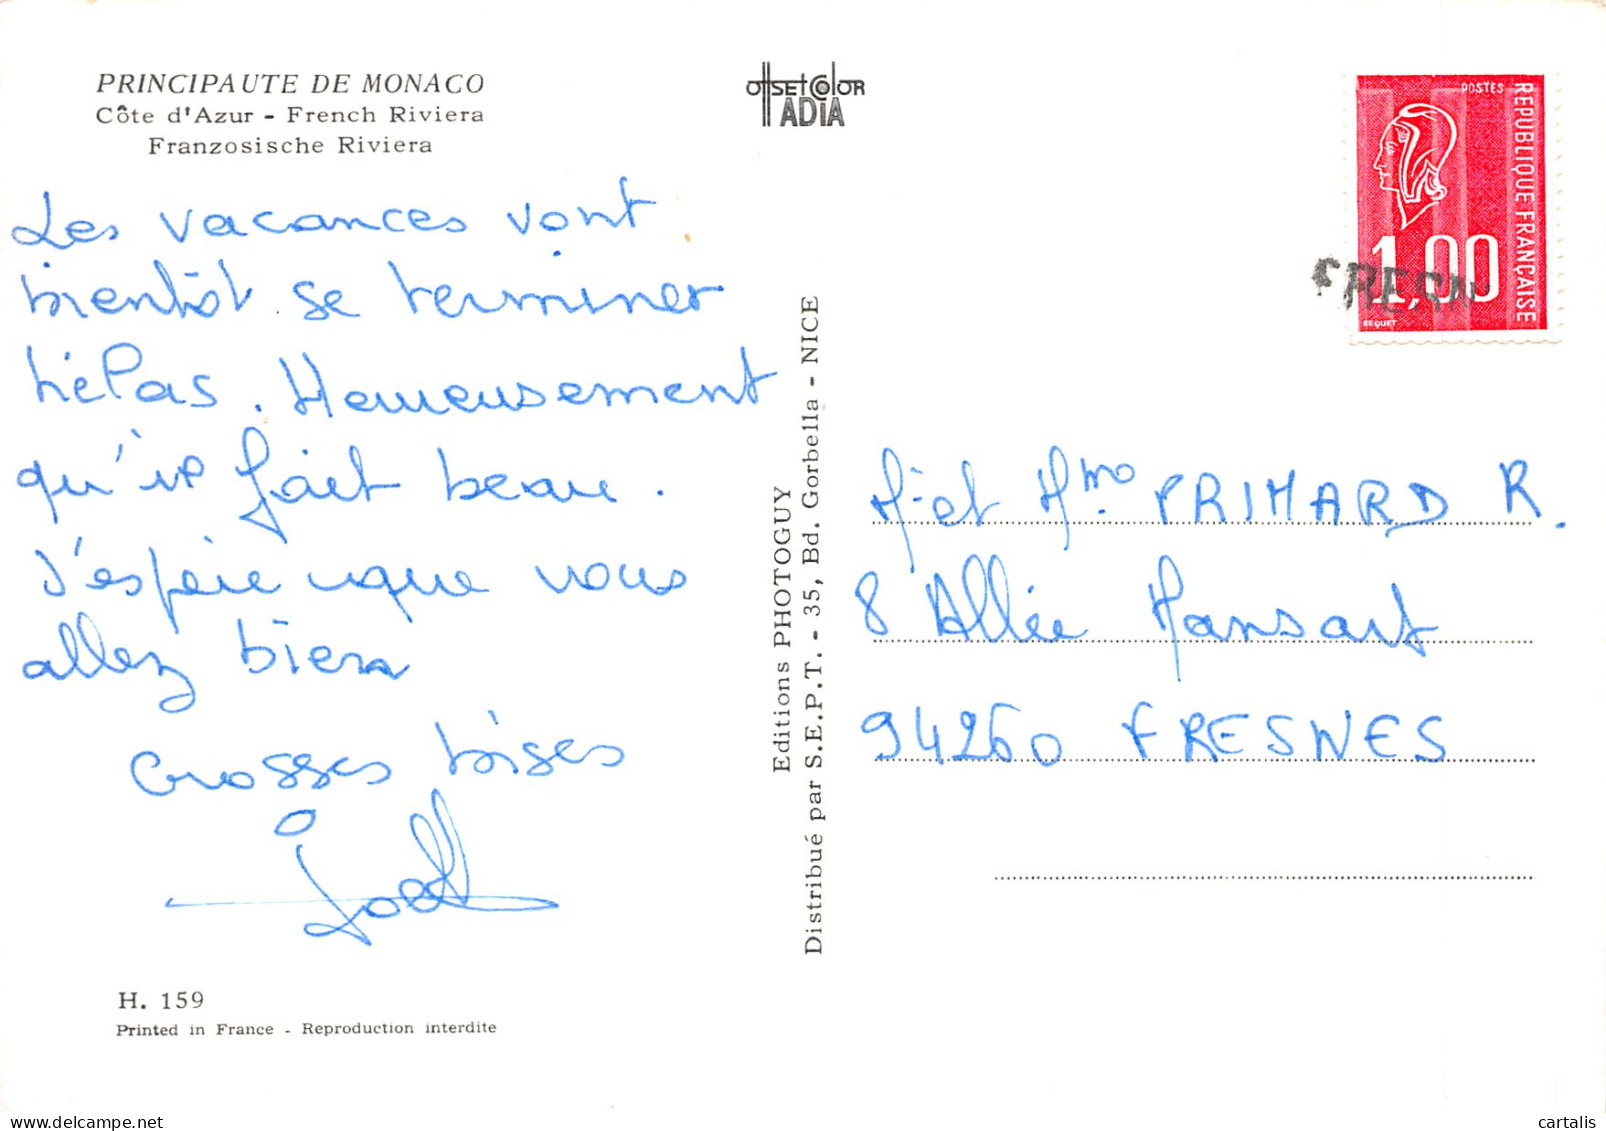 PRINCIPAUTE DE MONACO
Côte d'Azur - French Riviera
Franzosische Riviera
Les vacances vont
bientôt se terminer
hélas. Heureusement
qu'il fait beau.
J'espère que vous
allez bien
Grosses bises
H. 159
Printed in France - Reproduction interdite
OffsetColor
ADIA
Editions PHOTOGUY
Distribué par S.E.P.T. - 35, Bd. Gorbella - NICE
POSTES
REPUBLIQUE FRANÇAISE
1,00
BEQUET
M. et Mme PRIMARD R.
8 Allée Mansart
94260 FRESNES
cartalis